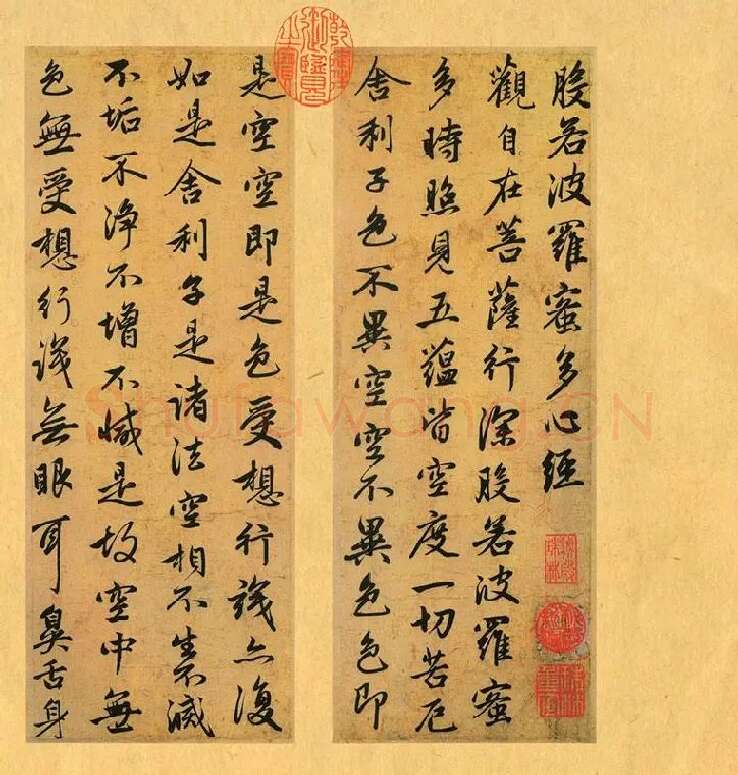 般若波羅蜜多心經
觀自在菩薩行深般若波羅蜜
多時照見五蘊皆空度一切苦厄
舍利子色不異空空不異色色即
是空空即是色受想行識亦復
如是舍利子是諸法空相不生不滅
不垢不淨不增不減是故空中無
色無受想行識無眼耳鼻舌身
乾隆御覽之寶
Shufawang.CN